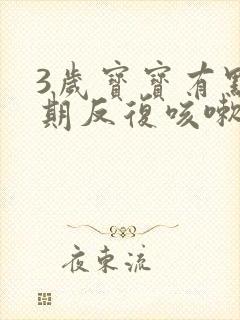 3歲寶寶有
期反復咳嗽
夜東流